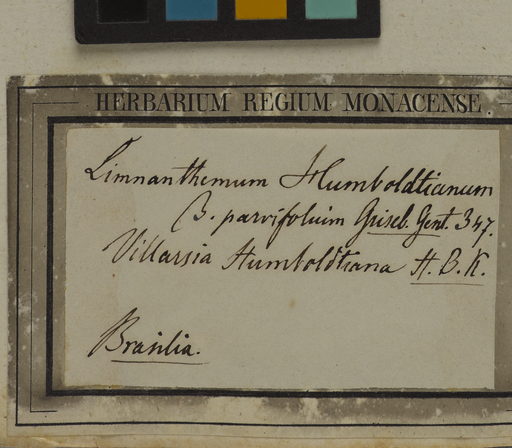 HERBARIUM REGIUM MONACENSE.
Limnanthemum Humboldtianum
β. parvifolium Griseb. Gent. 347.
Villarsia Humboldtiana H. B. K.
Brasilia.